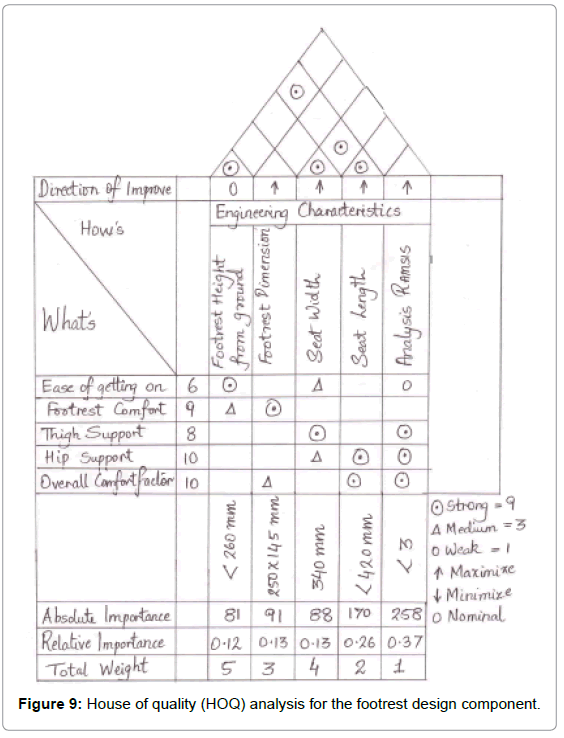 Direction of Improve O ↑ ↑ ↑ ↑
How's
What's
Engineering Characteristics
Footrest Height from ground
Footrest Dimension
Seat Width
Seat Length
Analysis RAMSIS
Ease of getting on 6 ⊙ Δ O
Footrest Comfort 9 Δ ⊙
Thigh Support 8 ⊙ ⊙
Hip Support 10 Δ ⊙ ⊙
Overall Comfort factor 10 Δ ⊙ ⊙
< 260 mm
250 x 145 mm
340 mm
< 420 mm
< 3
⊙ Strong = 9
Δ Medium = 3
O Weak = 1
↑ Maximize
↓ Minimize
O Nominal
Absolute Importance 81 91 88 170 258
Relative Importance 0.12 0.13 0.13 0.26 0.37
Total Weight 5 3 4 2 1
Figure 9: House of quality (HOQ) analysis for the footrest design component.